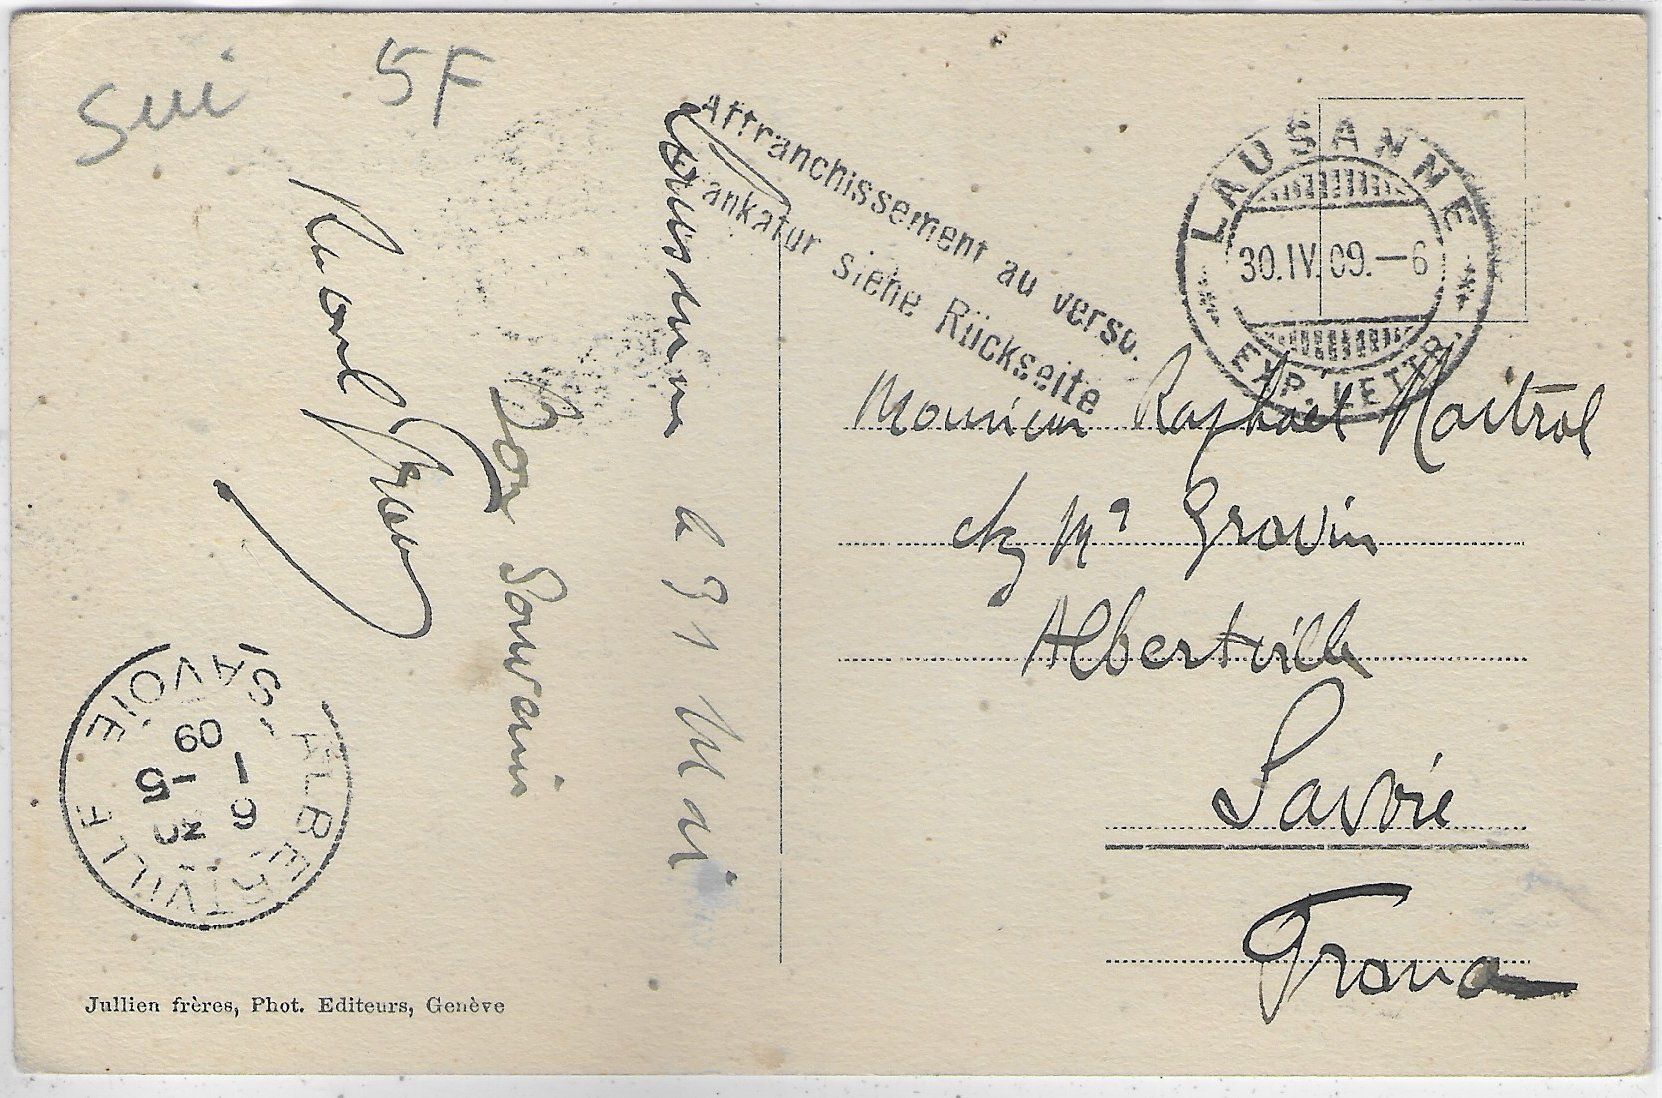 Sui 5F
Affranchissement au verso.
Frankatur siehe Rückseite
LAUSANNE
30.IV.09.—6
EXP. LETTR.
Lausanne le 31 Mai
Bon Souvenir
Monsieur Raphael Maitral
chz Me Gravin
Albertville
Savoie
France
ALBERTVILLE
SAVOIE
6
1 -5
09
Jullien frères, Phot. Editeurs, Genève